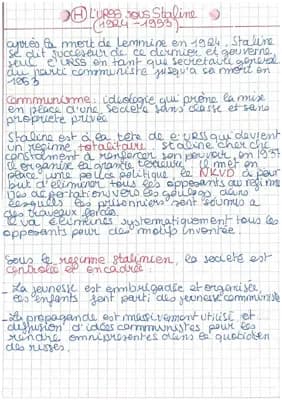 (H) L'URSS sous Staline
(1924-1953)
après la mort de Lemmine en 1924, Staline
se dit successeur de ce dernier et gouverne
seul l'URSS en tant que secrétaire général
du parti communiste jusqu'à sa mort en
1953
Communisme : idéologie qui prône la mise
en place d'une société sans classe et sans
propriété privée
Staline est à la tête de l'URSS qui devient
un régime totalitaire. Staline cherche
constamment à renforcer son pouvoir, en 1937
il organise la grande terreur. Il met en
place une police politique le NKVD a pour
but d'éliminer tous les opposants au régime
les déportations vers les goulags dans
lesquels les prisonniers sont soumis a
des travaux forcés.
Il va éliminer systématiquement tous les
opposants pour des motifs inventés.
Sous le régime stalinien, la société est
contrôlée et encadrée
- La jeunesse est embrigadée et organisée,
les enfants font parti des jeunesse communiste
- La propagande est massivement utilisé et
diffusion d'idées communistes pour les
rendre omniprésentes dans le quotidien
des russes.